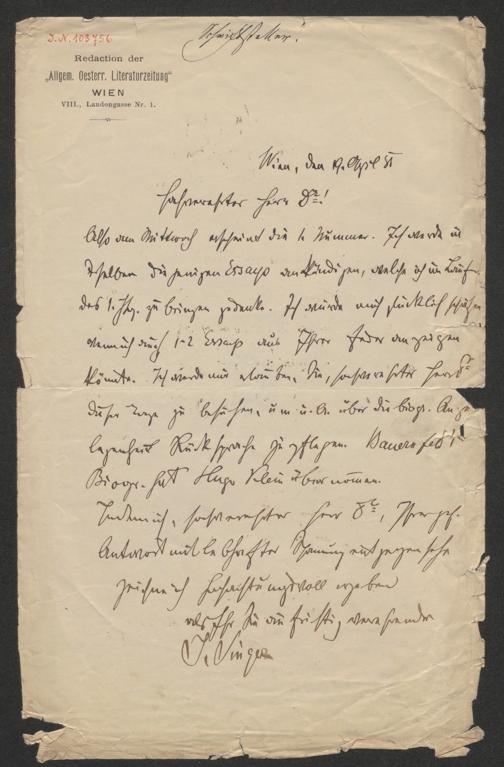 J.N. 103756
"Schriftsteller".
Redaction der
„Allgem. Oesterr. Literaturzeitung"
WIEN
VIII., Landongasse Nr. 1.
Wien, den 19. April 81
Hochverehrter Herr Dr!
Also am Mittwoch erscheint die 1. Nummer. Ich werde in
derselben diejenigen Essays ankündigen, welche ich im Laufe
des 1. Jhg. zu bringen gedenke. Ich würde mich glücklich schätzen
wenn ich auch 1-2 Essays aus Ihrer Feder anzeigen
könnte. Ich werde mir erlauben, Sie, hochverehrter Herr Dr
dieser Tage zu besuchen, um u. A. über die biogr. Ange-
legenheit Rücksprache zu pflegen. Bauernfeld's
Biogr. hat Hugo Klein übernommen.
Indem ich, hochverehrter Herr Dr, Ihrer gef.
Antwort mit lebhafter Spannung entgegensehe
zeichne ich hochachtungsvoll ergeben
als Ihr Sie aufrichtig verehrender
S. Singer